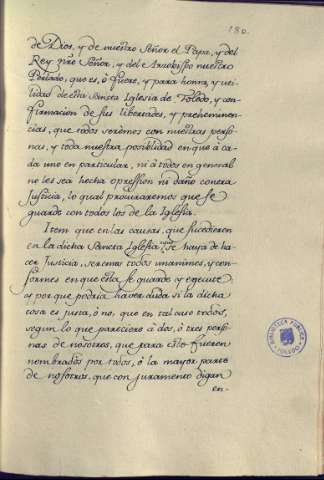 180.
de Dios, y de nuestro Señor el Papa, y del
Rey nr̃o Señor, y del Arzobispo nuestro
Perlado, que es, ô fuere, y para honrra, y vti-
lidad de esta Sancta Iglesia de Toledo, y con-
firmacion de sus libertades, y preheminen-
cias, que todos serêmos con nuestras perso-
nas, y toda nuestra posiblidad en que â ca-
da uno en particular, ni â todos en general
no les seâ hecha opression ni daño contra
Justicia, lo qual procuraremos que se
guarde con todos los de la Iglesia.
Item que en las causas, que sucedieren
en la dicha Sancta Iglesia que se haya de ha-
cer Justicia, seremos todos unanimes, y con-
formes en que esta se guarde y execute:
y porque podria haver duda si la dicha
cosa es justa, ô no, que en tal caso todos,
segun lo que pareciere â dos, ô tres perso-
nas de nosotros, que para esto fueren
nombrados por todos, ô la mayor parte
de nosotros, que con juramento digan
en-
BIBLIOTECA PUBLICA
TOLEDO